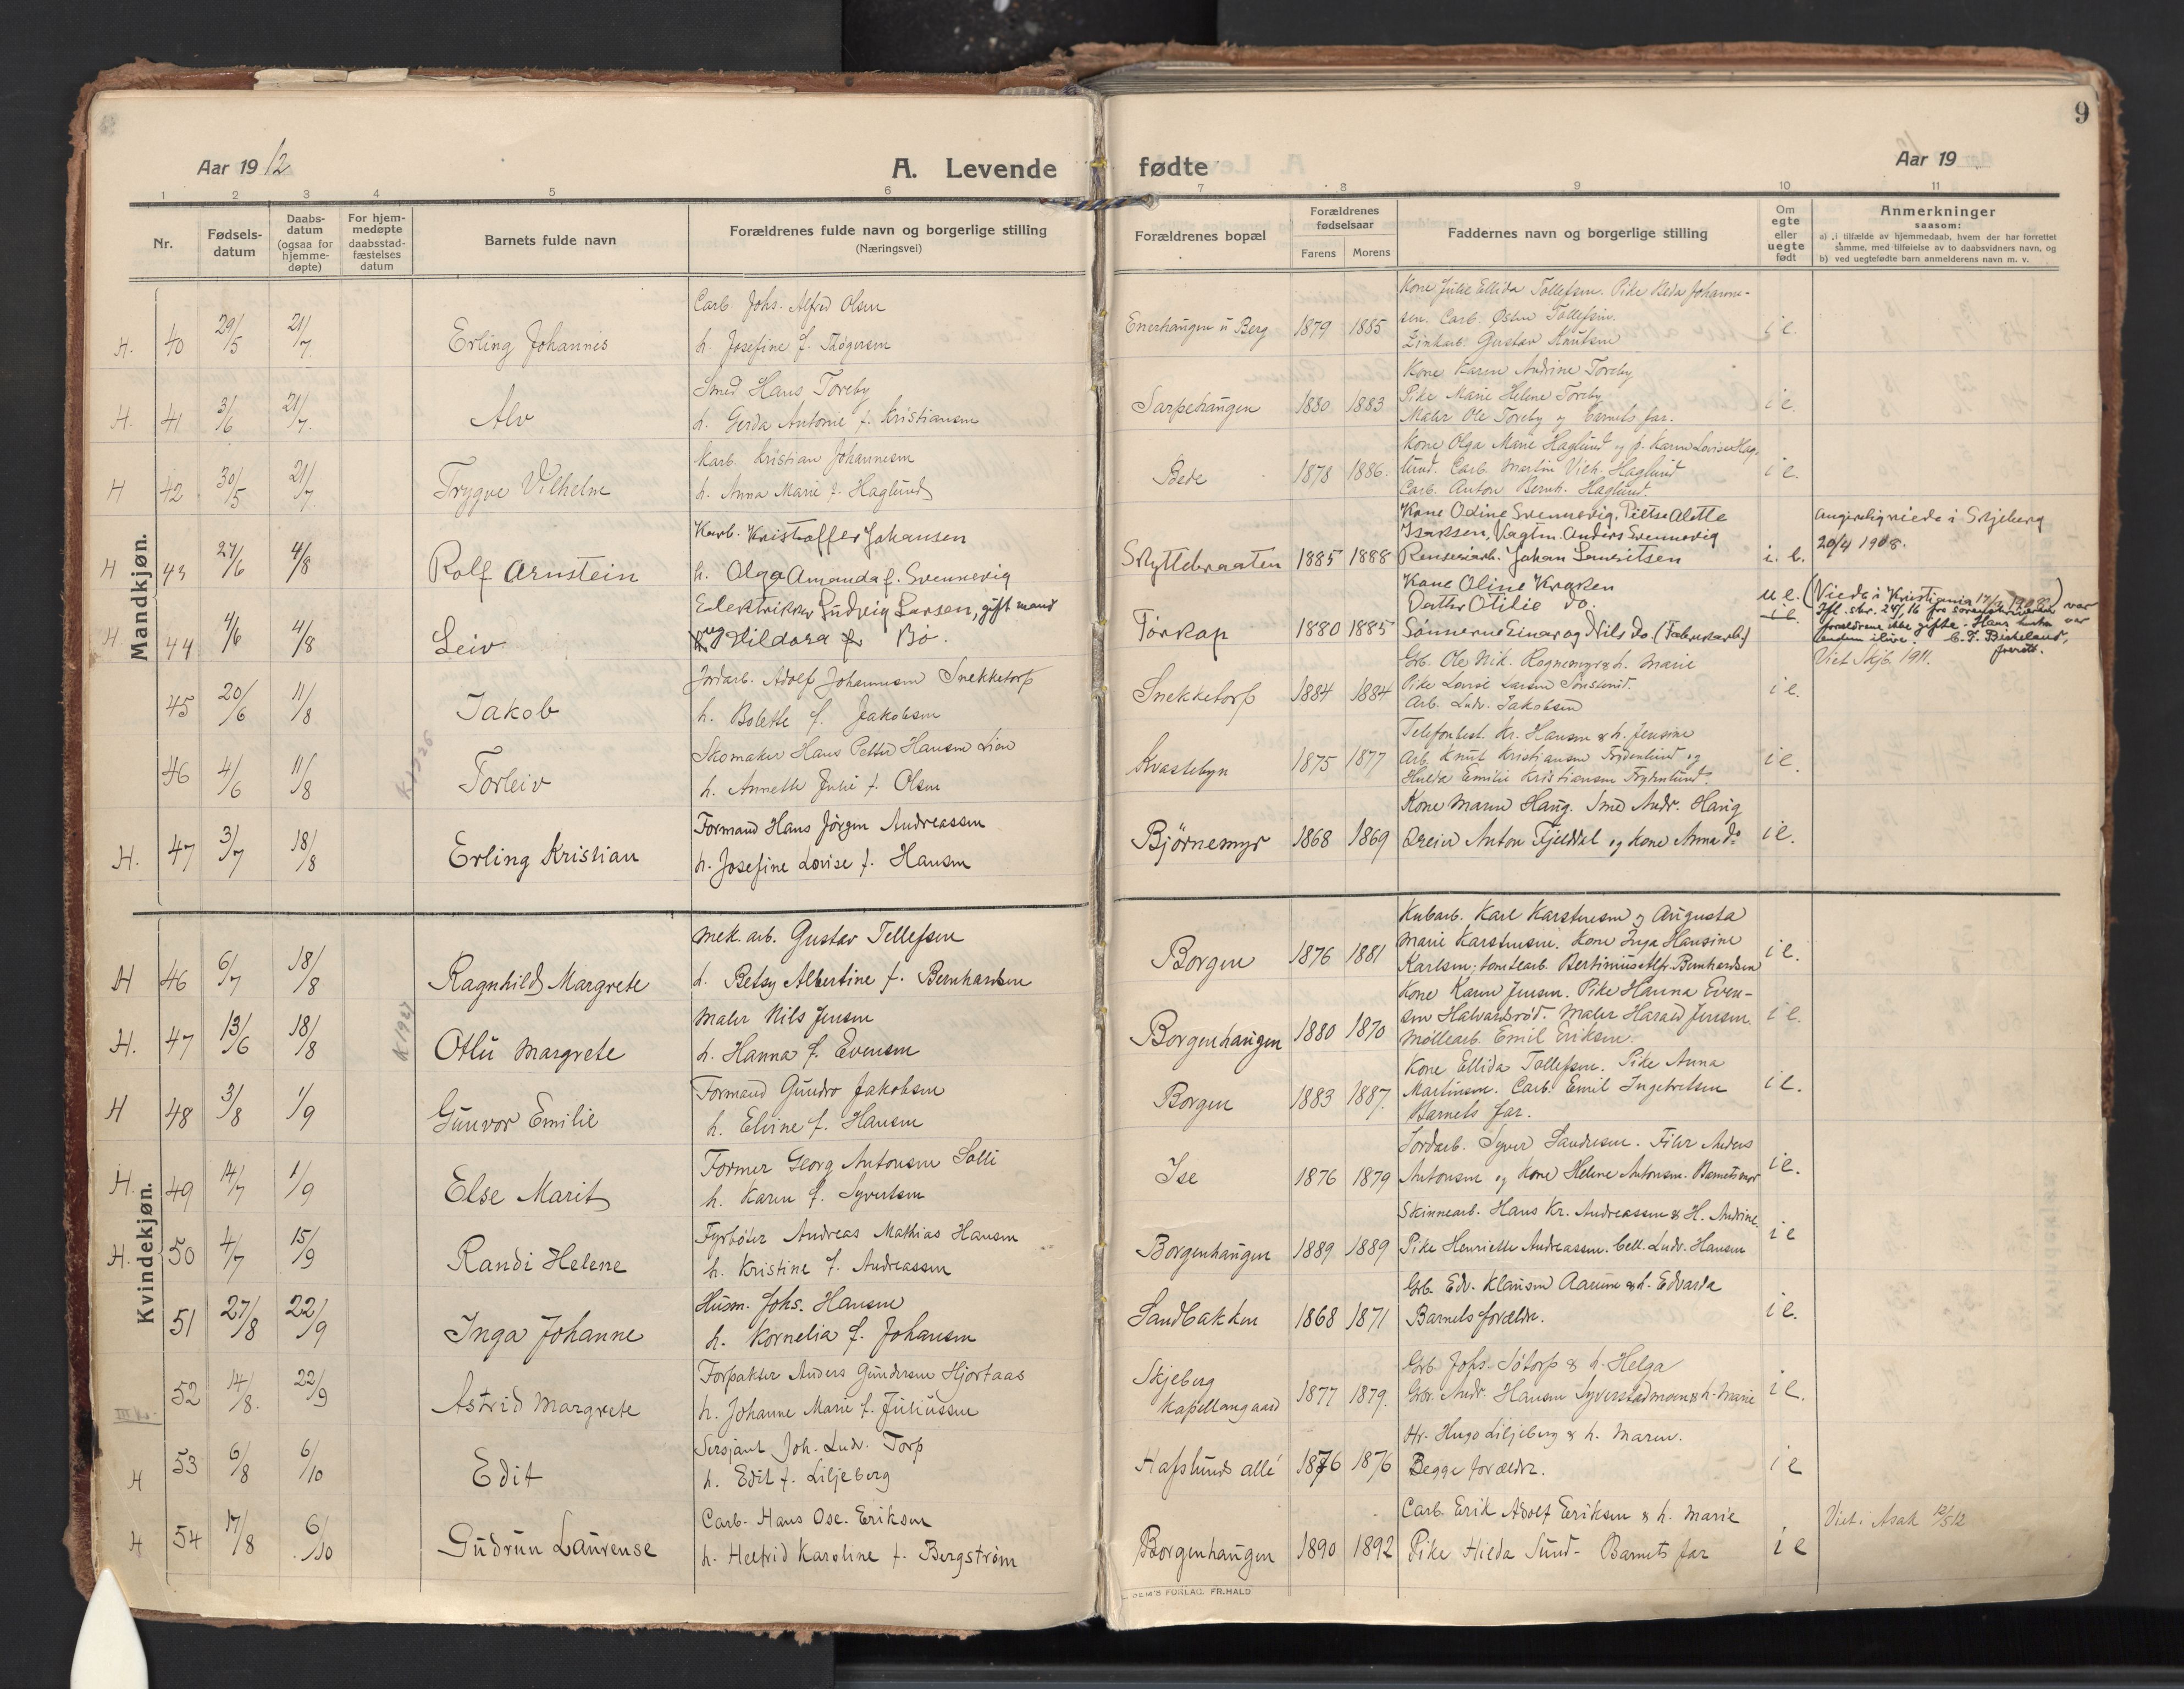 9
Aar 1912
A. Levende
fødte
Aar 19
1 2 3 4 5 6 7 8 9 10 11
Nr.
Fødsels-
datum
Daabs-
datum
(ogsaa for
hjemme-
døpte)
For hjem-
medøpte
daabsstad-
fæstelses
datum
Barnets fulde navn
Forældrenes fulde navn og borgerlige stilling
(Næringsvei)
Forældrenes bopæl
Forældrenes
fødselsaar
Farens Morens
Faddernes navn og borgerlige stilling
Om
egte
eller
uegte
født
Anmerkninger
saasom:
a) i tilfælde av hjemmedaab, hvem der har forrettet
samme, med tilføielse av to daabsvidners navn, og
b) ved uegtefødte barn anmelderens navn m. v.
Mandkjøn.
H. 40 29/5 21/7 Erling Johannes
Carb. Johs. Alfred Olsen
h. Josefine f. Thøgersen
Enerhaugen u Berg 1879 1885
Kone Julie Ellida Tollefsen. Pike Elida Johanne-
sen. Carb. Østen Tollefsen.
Zinkarb. Gustav Knutsen
i e.
H. 41 3/6 21/7 Alv
Smed Hans Toreby
h. Gerda Antonie f. Kristiansen
Sarpehaugen 1880 1883
Kone Karen Andrine Toreby
Pike Marie Helene Toreby
Maler Ole Toreby og barnets far.
i e.
H 42 30/5 21/7 Trygve Vilhelm
Karb. Kristian Johannesen
h. Anna Marie f. Haglund
Bede 1878 1886.
Kone Olga Marie Haglund og p. Karen Lovise Hag-
lund. Carb. Martin Vilh. Haglund
Carb. Anton Bernh. Haglund.
i e.
H 43 27/6 4/8 Rolf Arnstein
Karb. Kristoffer Johansen
h. Olga Amanda f. Svennevig
Skyttebraaten 1885 1888
Kone Odine Svennevig, Alette
Isaksen, Vagtm. Anders Svennevig
Renseriarb. Johan Lauritsen
i. e.
angivelig viede i Skjeberg
20/4 1908.
H 44 4/6 4/8 Leiv
Elektriker Ludvig Larsen, gift mand
og Hildora Bø.
Torkap 1880 1885
Kone Oline Kraken
Datter Otilie do.
Sønnerne Einar og Nils do. (Fabrikarb.)
u e.
i e.
(Viede i Kristiania
Ifl. skr. 24/, 16 fra sorenskriveren var
forældrene ikke gifte. Hans hustru var
endnu ilive.
45 20/6 11/8 Jakob
Jordarb. Adolf Johannesen Snekketorp
h. Bolette f. Jakobsen
Snekketorp 1884 1884
Grb. Ole Nik. Rognemyr & h. Marie
Pike Lovise Larsen
Arb. Ludv. Jakobsen
i e.
Viet Skjb. 1911.
46 4/6 11/8 Torleiv
Skomaker Hans Petter Hansen Lien
h. Annette Julie f. Olsen
Kvastebyn 1875 1877
Telefonbest. Kr. Hansen & h. Jensine
Arb. Knut Kristiansen Frydenlund og
Hulda Emilie Kristiansen Frydenlund.
i e.
H. 47 3/7 18/8 Erling Kristian
Formand Hans Jørgen Andreassen
h. Josefine Lovise f. Hansen
Bjørnemyr 1868 1869
Kone Maren Haug. Smed Andr. Haug
Dreier Anton Fjelddal og kone Anna do
i e.
Kvindekjøn.
H 46 6/7 18/8 Ragnhild Margrete
Mek. arb. Gustav Tellefsen
h. Betsy Albertine f. Bernhardsen
Borgen 1876 1881
Kubarb. Karl Karstensen og Augusta
Marie Karstensen. Kone Inga Hansine
Karlsen; tomtearb. Bertinius Alfr. Bernhardsen
i e.
H. 47 13/6 18/8 Otlu Margrete
Maler Nils Jensen
h. Hanna f. Evensen
Borgenhaugen 1880 1870
Kone Karen Jensen. Pike Hanna Even-
sen Halvardsrød. Maler Harald Jensen.
Møllearb. Emil Eriksen.
i e.
H 48 3/8 1/9 Gunvor Emilie
Formand Gundro Jakobsen
h. Elvine f. Hansen
Borgen 1883 1887.
Kone Ellida Tollefsen. Pike Anna
Martinsen. Carb. Emil Ingebretsen
Barnets far.
i e.
H. 49 14/7 1/9 Else Marit
Former Georg Antonsen Solli
h. Karen f. Syvertsen
Ise 1876 1879
Jordarb. Syver Sandersen. Filer Anders
Antonsen og kone Helene Antonsen. Barnets mor
i e.
H. 50 4/7 15/9 Randi Helene
Fyrbøter Andreas Mathias Hansen
h. Kristine f. Andreassen
Borgenhaugen 1889 1889
Skinnearb. Hans Kr. Andreassen & H. Andrine.
Pike Henriette Andreassen. Cell. Ludv. Hansen
i e
51 27/8 22/9 Inga Johanne
Husm. Johs. Hansen
h. Kornelia f. Johansen
Sandbakken 1868 1871
Grb. Edv. Klausen Aarum & h. Edvarda
Barnets forældre.
i e.
52 14/8. 22/9 Astrid Margrete
Forpakter Anders Gundersen Hjortaas
h. Johanne Marie f. Juliussen
Skjeberg
Kapellangaard 1877 1879.
Grb. Johs. Søtorp & h. Helga
Grbr. Andr. Hansen Syverstadmoen & h. Marie
i e.
H 53 6/8 6/10 Edit
Sersjant Joh. Ludv. Torp
h. Edit f. Liljeberg
Hafslunds allé 1876 1876
Hr. Hugo Liljeberg & h. Maren.
Begge forældre.
i e
H 54 17/8 6/10 Gudrun Laurense
Carb. Hans Osc. Eriksen
h. Helfrid Karoline f. Bergstrøm
Borgenhaugen 1890 1892
Carb. Erik Adolf Eriksen & h. Marie
Pike Hilda Sund - Barnets far
i e
Viet. Asak 12/5 12
FORLAG. FR. HALD